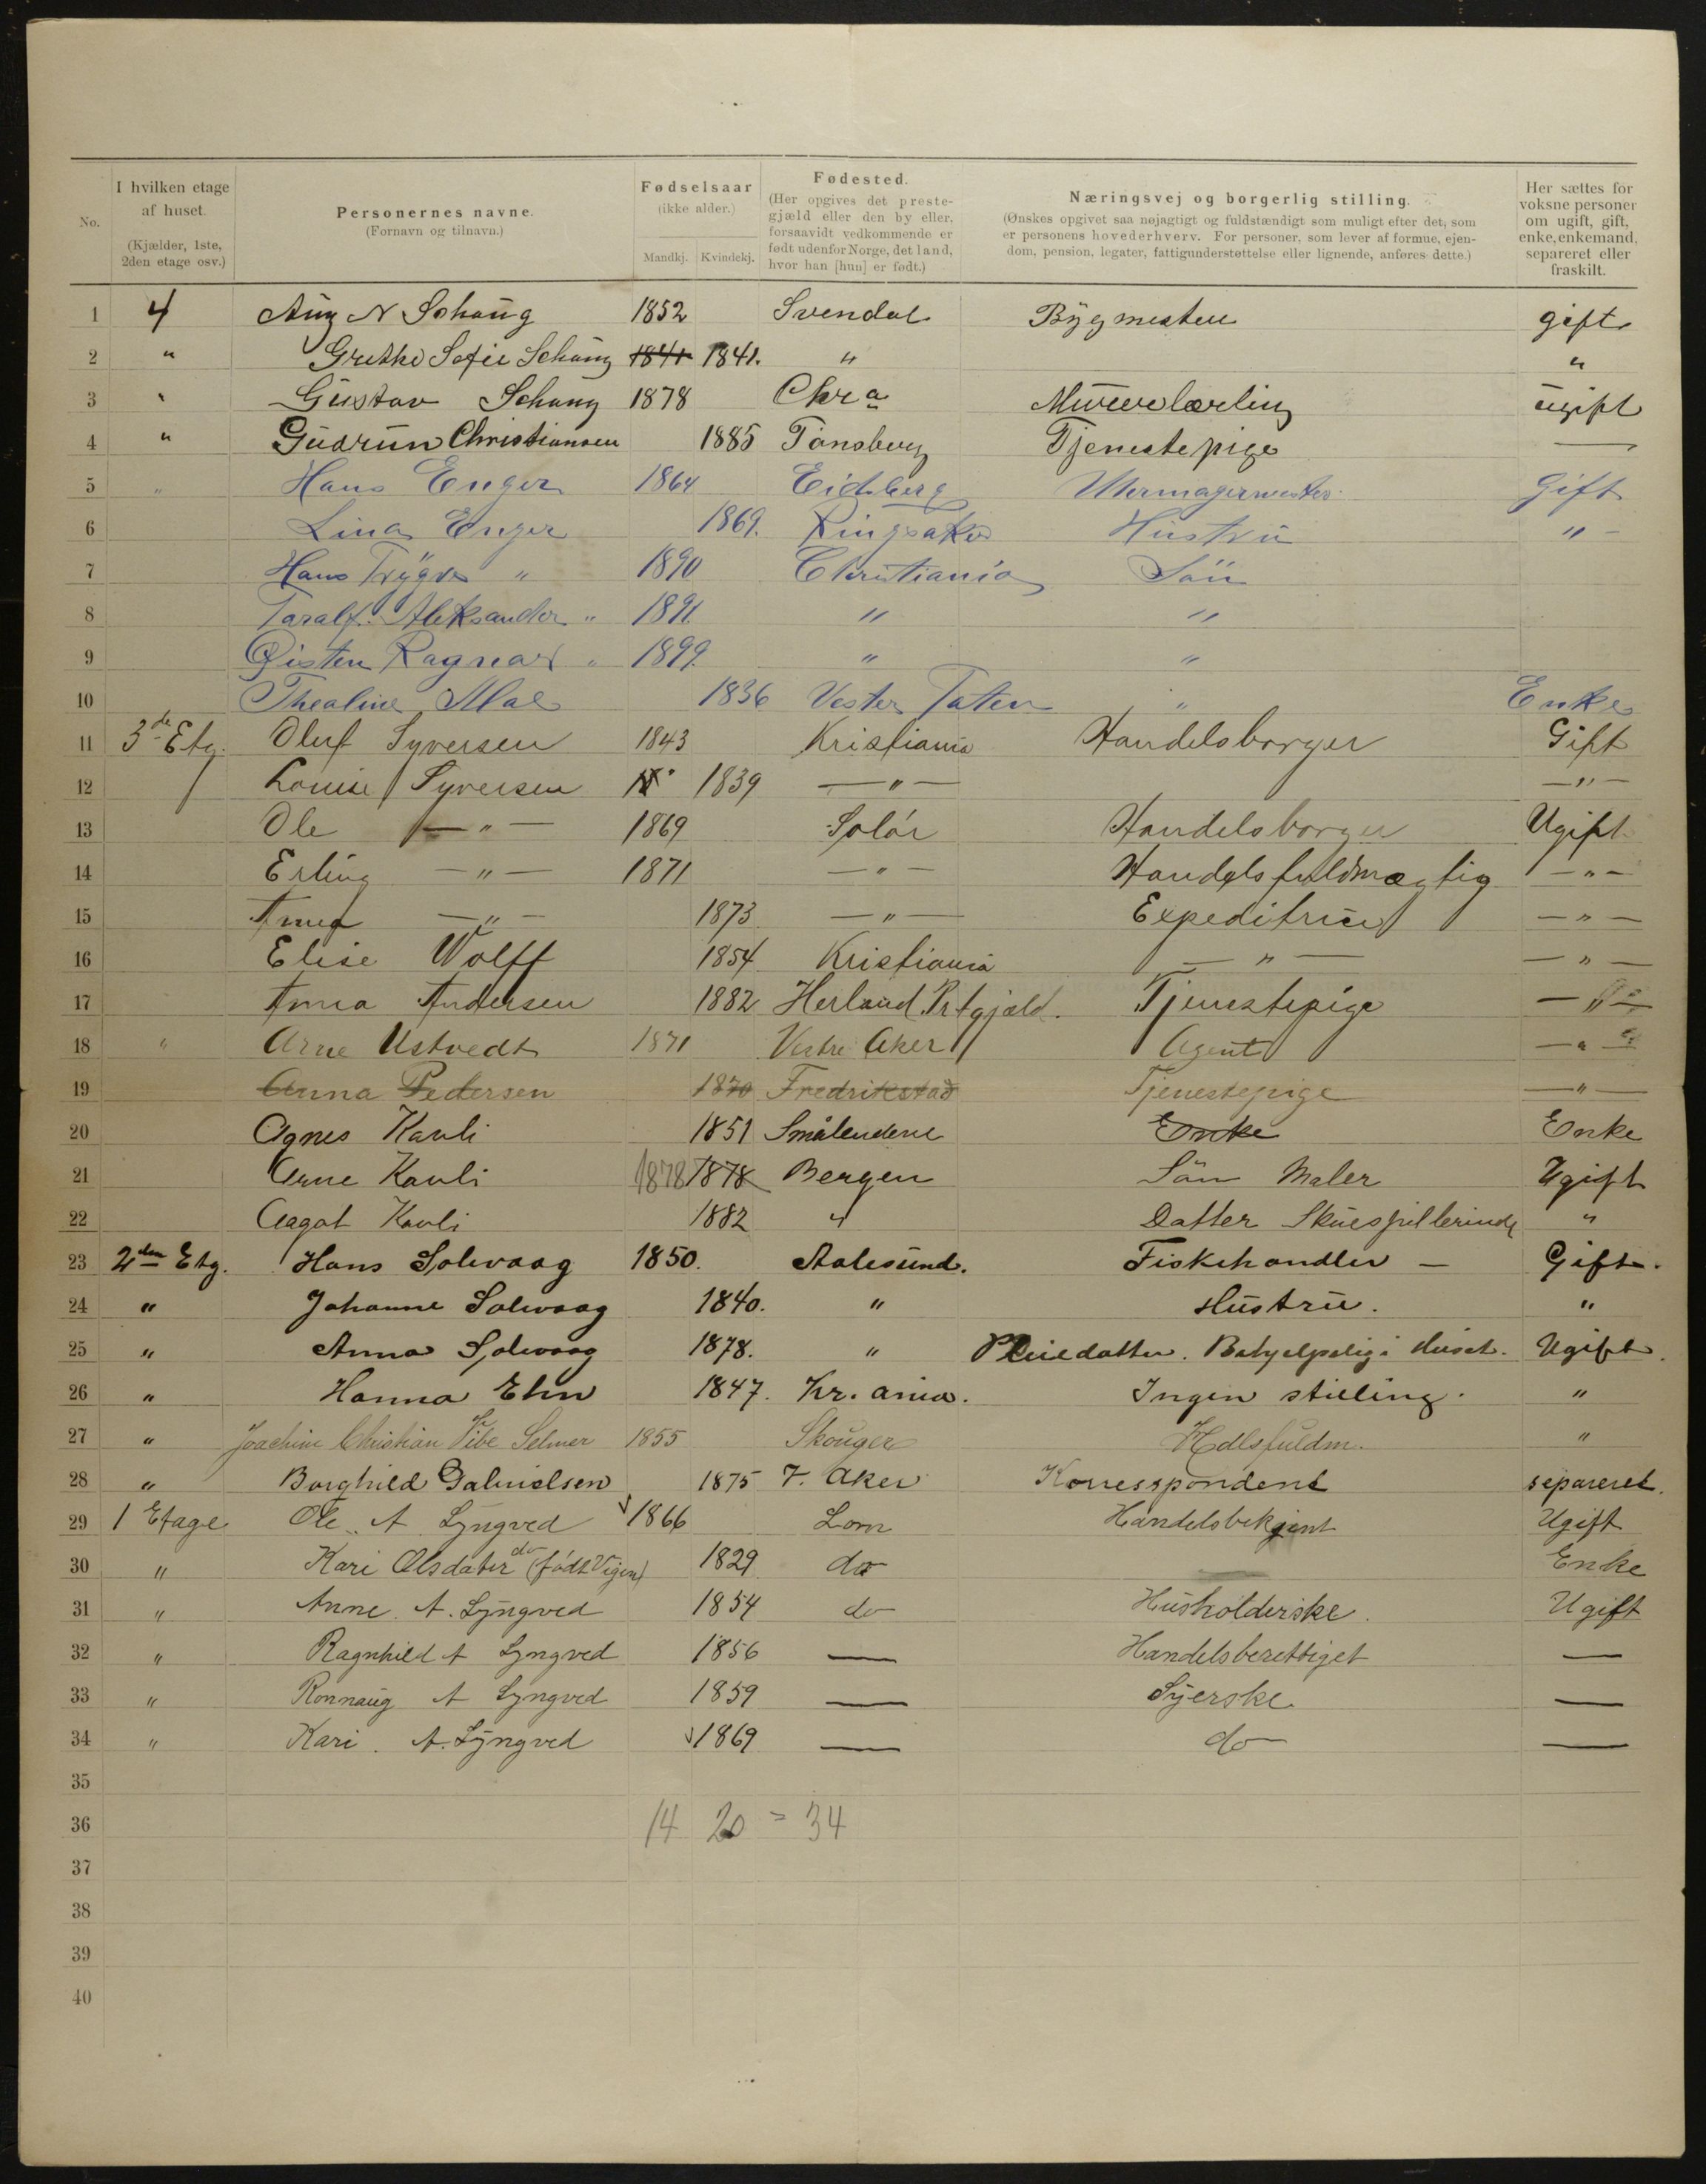 I hvilken etage af huset. (Kjælder, 1ste, 2den etage osv.)
No.
Personernes navne. (Fornavn og tilnavn.)
Fødselsaar (ikke alder.) Mandkj. Kvindekj.
Fødested. (Her opgives det prestegjæld eller den by eller, forsaavidt vedkommende er født udenfor Norge, det land, hvor han [hun] er født.)
Næringsvej og borgerlig stilling. (Ønskes opgivet saa nøjagtigt og fuldstændigt som muligt efter det, som er personens hovederhverv. For personer, som lever af formue, ejendom, pension, legater, fattigunderstøttelse eller lignende, anføres dette.)
Her sættes for voksne personer om ugift, gift, enke, enkemand, separeret eller fraskilt.
1 4 Aug N Schaug 1852 Svendal Bygmester gift
2 " Grethe Sofie Schaug 1841 1841. " "
3 " Gustav Schaug 1878 Chra Murerlærling ugift
4 " Gudrun Christiansen 1885 Tønsberg Tjenestepige —
5 " Hans Enger 1864 Eidsberg Uhrmagermester Gift
6 Lina Enger 1869. Ringsaker Hustru " -
7 Hans Trygve " 1890 Christiania Søn
8 Taralf Aleksander " 1891 " "
9 Øisten Ragnar " 1899 " "
10 Thealine Moe 1836 Vestre Toten " Enke
11 3de Etg. Oluf Syversen 1843 Kristiania Handelsborger Gift
12 Louise Syversen 1839 — " — — " —
13 Ole — " — 1869 Solør Handelsborger Ugift
14 Erling — " — 1871 — " — Handelsfuldmægtig — " —
15 Anna — " — 1873 — " — Expeditrice — " —
16 Elise Wolff 1854 Kristiania — " — — " —
17 Anna Andersen 1882 Herland Prtgjæld. Tjenestepige — " —
18 " Arne Ustvedt 1871 Vestre Aker Agent — " —
19 Anna Pedersen 1870 Fredrikstad Tjenestepige — " —
20 Agnes Kavli 1851 Smålendene Enke Enke
21 Arne Kavli 1878 1878 Bergen Søn Maler Ugift
22 Aagot Kavli 1882 " Datter Skuespillerinde "
23 2den Etg. Hans Solevaag 1850. Aalesund. Fiskehandler — Gift.
24 " Johanne Solevaag 1840. " Hustru. "
25 " Anna Solevaag 1878. " Pleiedatter. Behjelpelig i Huset. Ugift.
26 " Hanna Ehn 1847. Kr. ania. Ingen stilling. "
27 " Joachim Christian Vibe Selmer 1855 Skouger Hdlsfuldm. "
28 " Borghild Gabrielsen 1875 V. Aker Korrespondent separeret.
29 1 Etage Ole A Lyngved 1866 Lom Handelsbetjent Ugift
30 " Kari Olsdatter do (født Vigen) 1829 do Enke
31 " Anne A. Lyngved 1854 do Husholderske. Ugift
32 " Ragnhild A Lyngved 1856 — Handelsberettiget —
33 " Ronnaug A Lyngved 1859 — Syerske —
34 " Kari A. Lyngved 1869 — do —
35
36 14 20 = 34
37
38
39
40